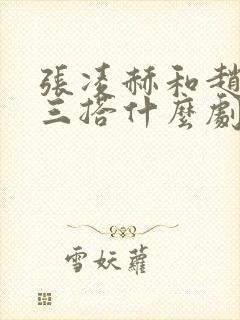 張凌赫和趙
三搭什麼劇
雪妖蘿